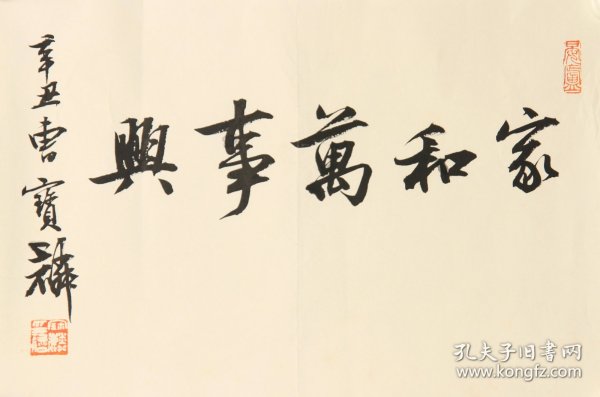 家和萬事興
辛丑曹寶麟
孔夫子旧书网
www.kongfz.com